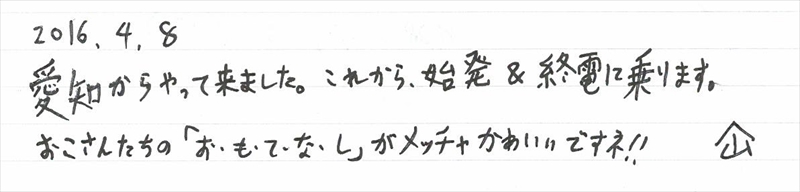 2016. 4. 8
愛知からやって来ました。これから、始発 & 終電に乗ります。
おこさんたちの「お・も・て・な・し」がメッチャかわいいですネ!! 山